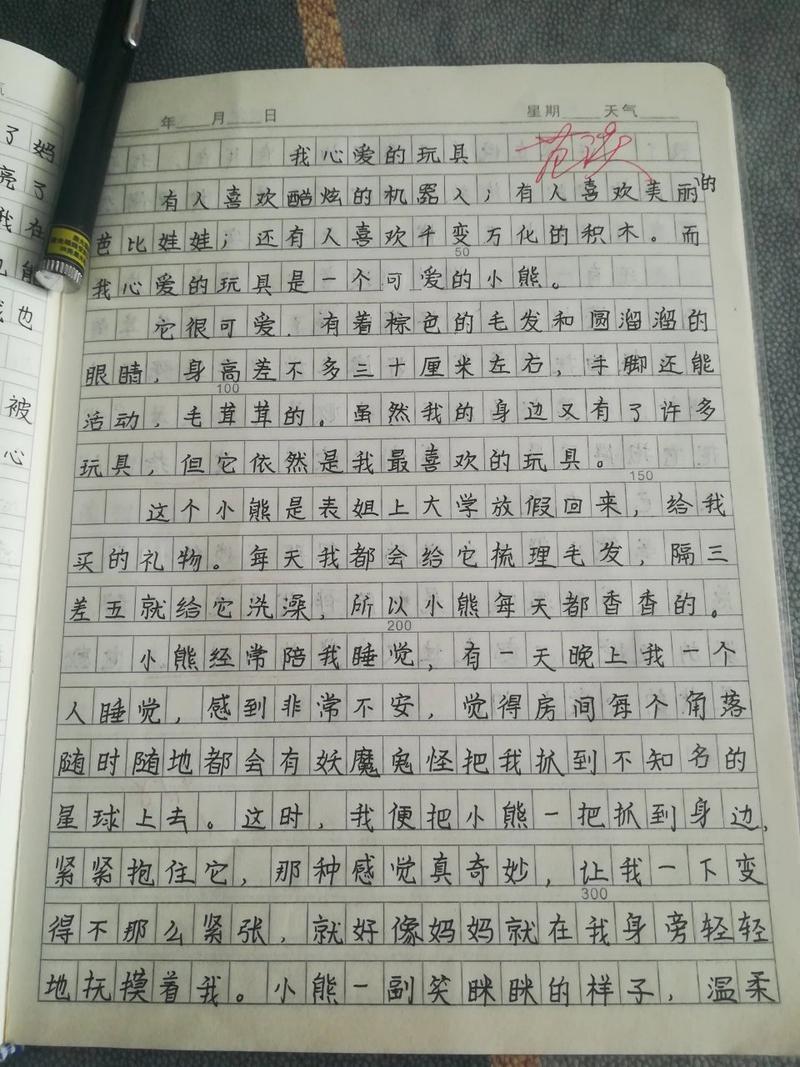 年 月 日 星期 天气
我心爱的玩具
有人喜欢酷炫的机器人；有人喜欢美丽的
芭比娃娃；还有人喜欢千变万化的积木。而
50
我心爱的玩具是一个可爱的小熊。
它很可爱．有着棕色的毛发和圆溜溜的
眼睛，身高差不多三十厘米左右，手脚还能
100
活动，毛茸茸的。虽然我的身边又有了许多
玩具，但它依然是我最喜欢的玩具。
150
这个小熊是表姐上大学放假回来，给我
买的礼物。每天我都会给它梳理毛发，隔三
差五就给它洗澡，所以小熊每天都香香的。
200
小熊经常陪我睡觉，有一天晚上我一个
人睡觉，感到非常不安，觉得房间每个角落
随时随地都会有妖魔鬼怪把我抓到不知名的
星球上去。这时，我便把小熊一把抓到身边，
紧紧抱住它，那种感觉真奇妙，让我一下变
300
得不那么紧张，就好像妈妈就在我身旁轻轻
地抚摸着我。小熊一副笑眯眯的样子，温柔
了妈
亮了
我在
也能
我也
被
心